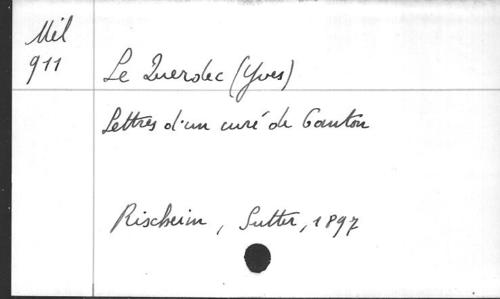 Mil
911
Le Querdec (Yves)
Lettres d'un curé de Canton
Rischeim, Sutter, 1897